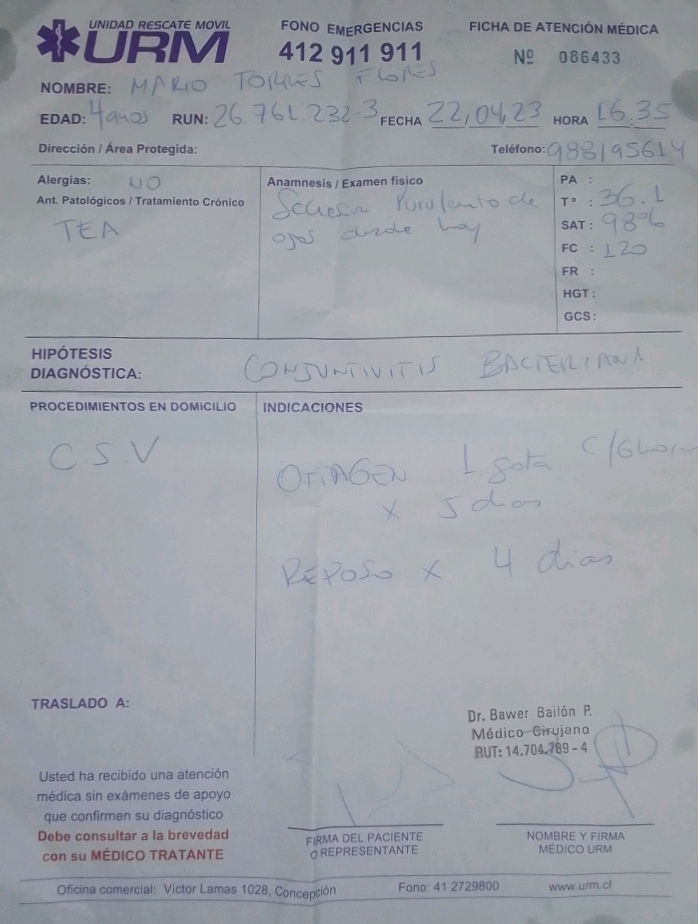 UNIDAD RESCATE MOVIL
URM
FONO EMERGENCIAS
412 911 911
FICHA DE ATENCIÓN MÉDICA
Nº 086433
NOMBRE: MARIO TORRES FLORES
EDAD: 4 años RUN: 26.761.232-3 FECHA 22,04,23 HORA 16.35
Dirección / Área Protegida: Teléfono: 988195614
Alergias: NO
Ant. Patológicos / Tratamiento Crónico
TEA
Anamnesis / Examen fisico
Secresin Purulento de
ojos desde hoy
PA :
Tº : 36.1
SAT: 98%
FC : 120
FR :
HGT:
GCS:
HIPÓTESIS
DIAGNÓSTICA: CONJUNTIVITIS BACTERIANA
PROCEDIMIENTOS EN DOMICILIO
CSV
INDICACIONES
OTIAGEN 1 gota c/6 horas
x 5 dias
REPOSO x 4 dias
TRASLADO A:
Dr. Bawer Bailón P.
Médico Cirujano
RUT: 14.704.789-4
Usted ha recibido una atención
médica sin exámenes de apoyo
que confirmen su diagnóstico
Debe consultar a la brevedad
con su MÉDICO TRATANTE
FIRMA DEL PACIENTE
O REPRESENTANTE
NOMBRE Y FIRMA
MÉDICO URM
Oficina comercial: Víctor Lamas 1028, Concepción Fono: 41 2729800 www.urm.cl